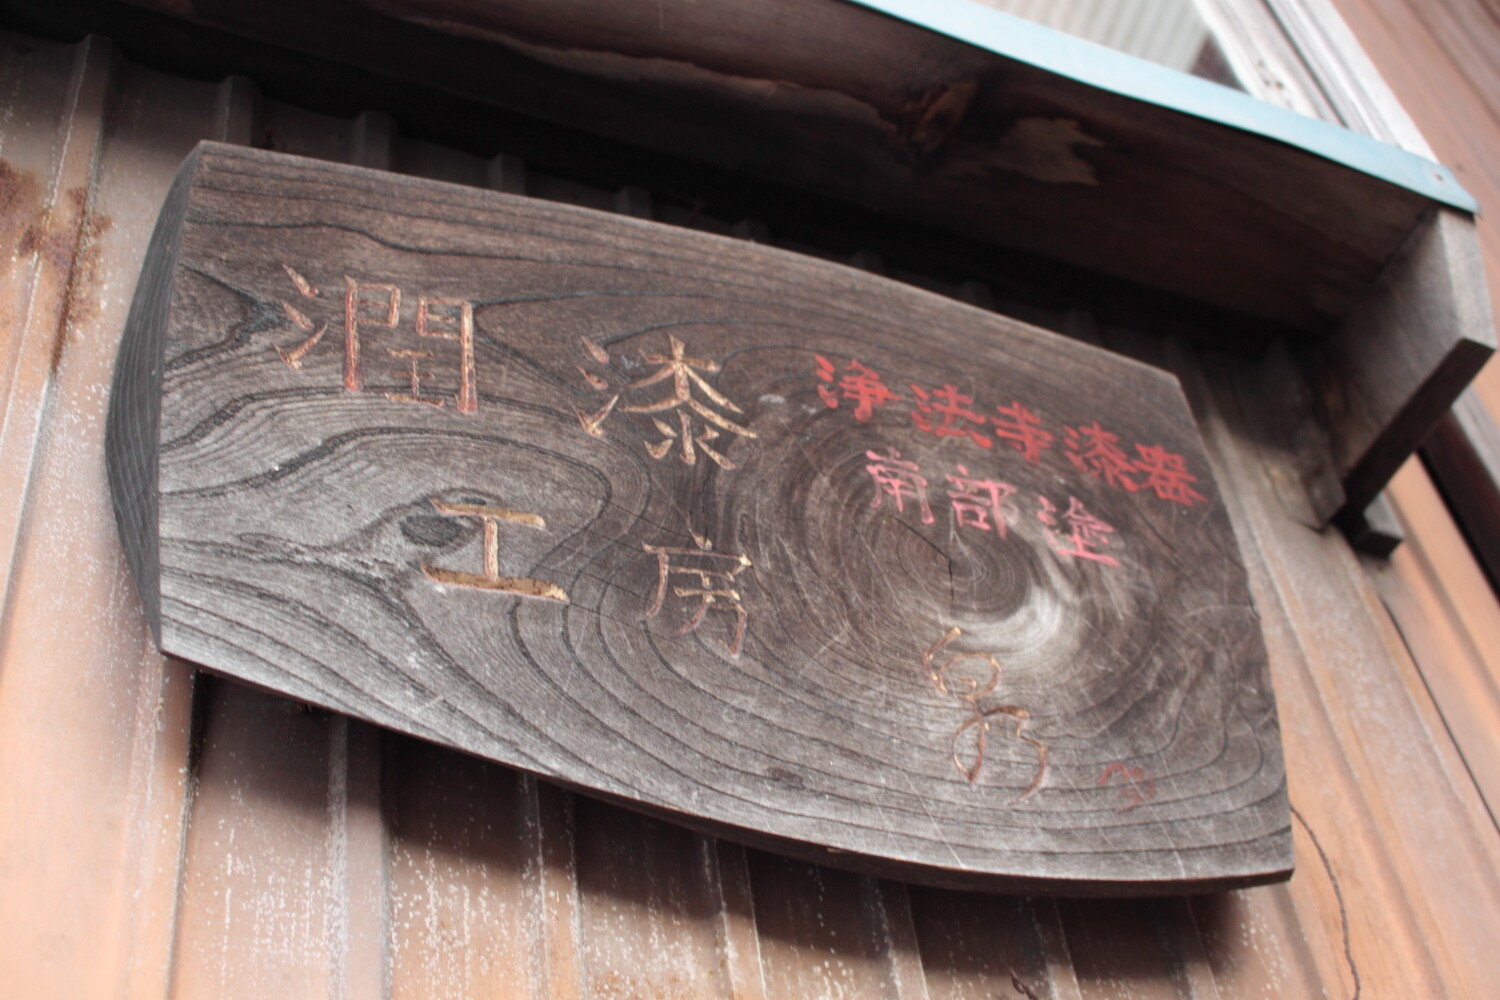 浄法寺漆器
南部塗
潤漆
工房